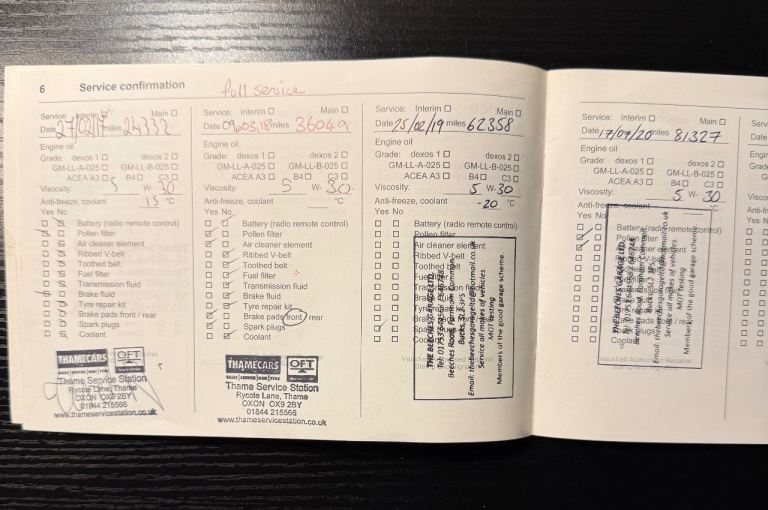 6 Service confirmation
full service
Service: Interim Main
Date 27/02/17 miles 24332
Engine oil
Grade: dexos 1 dexos 2
GM-LL-A-025 GM-LL-B-025
ACEA A3 B4 C3
Viscosity: 5 W- 30
Anti-freeze, coolant 15 °C
Yes No
Battery (radio remote control)
Pollen filter
Air cleaner element
Ribbed V-belt
Toothed belt
Fuel filter
Transmission fluid
Brake fluid
Tyre repair kit
Brake pads front / rear
Spark plugs
Coolant
THAMECARS OFT
Thame Service Station
Rycote Lane, Thame
OXON OX9 2BY
01844 215566
www.thameservicestation.co.uk
Service: Interim Main
Date 09.03.18 miles 36049
Engine oil
Grade: dexos 1 dexos 2
GM-LL-A-025 GM-LL-B-025
ACEA A3 B4 C3
Viscosity: 5 W- 30.
Anti-freeze, coolant °C
Yes No
Battery (radio remote control)
Pollen filter
Air cleaner element
Ribbed V-belt
Toothed belt
Fuel filter
Transmission fluid
Brake fluid
Tyre repair kit
Brake pads front / rear
Spark plugs
Coolant
THAMECARS OFT
Thame Service Station
Rycote Lane, Thame
OXON OX9 2BY
01844 215566
www.thameservicestation.co.uk
Service: Interim Main
Date 25/02/19 miles 62358
Engine oil
Grade: dexos 1 dexos 2
GM-LL-A-025 GM-LL-B-025
ACEA A3 B4 C3
Viscosity: 5 W-30
Anti-freeze, coolant -20 °C
Yes No
Battery (radio remote control)
Pollen filter
Air cleaner element
Ribbed V-belt
Toothed belt
THE BEECHES GARAGE LTD.
Beeches Road, Farnham Common,
Bucks,
Email: thebeechesgarageltd@hotmail.co.uk
Service all makes of vehicles.
MOT Testing
Members of the good garage scheme.
Service: Interim Main
Date 17/09/20 miles 81327
Engine oil
Grade: dexos 1 dexos 2
GM-LL-A-025 GM-LL-B-025
ACEA A3 B4 C3
Viscosity: 5 W- 30
Anti-freeze, coolant °C
Yes No
Battery (radio remote control)
Pollen filter
THE BEECHES GARAGE LTD.
Beeches Road, Farnham Common,
Email: thebeechesgarageltd@hotmail.co.uk
Service all makes of vehicles.
MOT Testing
Members of the good garage scheme.
Vauxhall Authorised Repairer